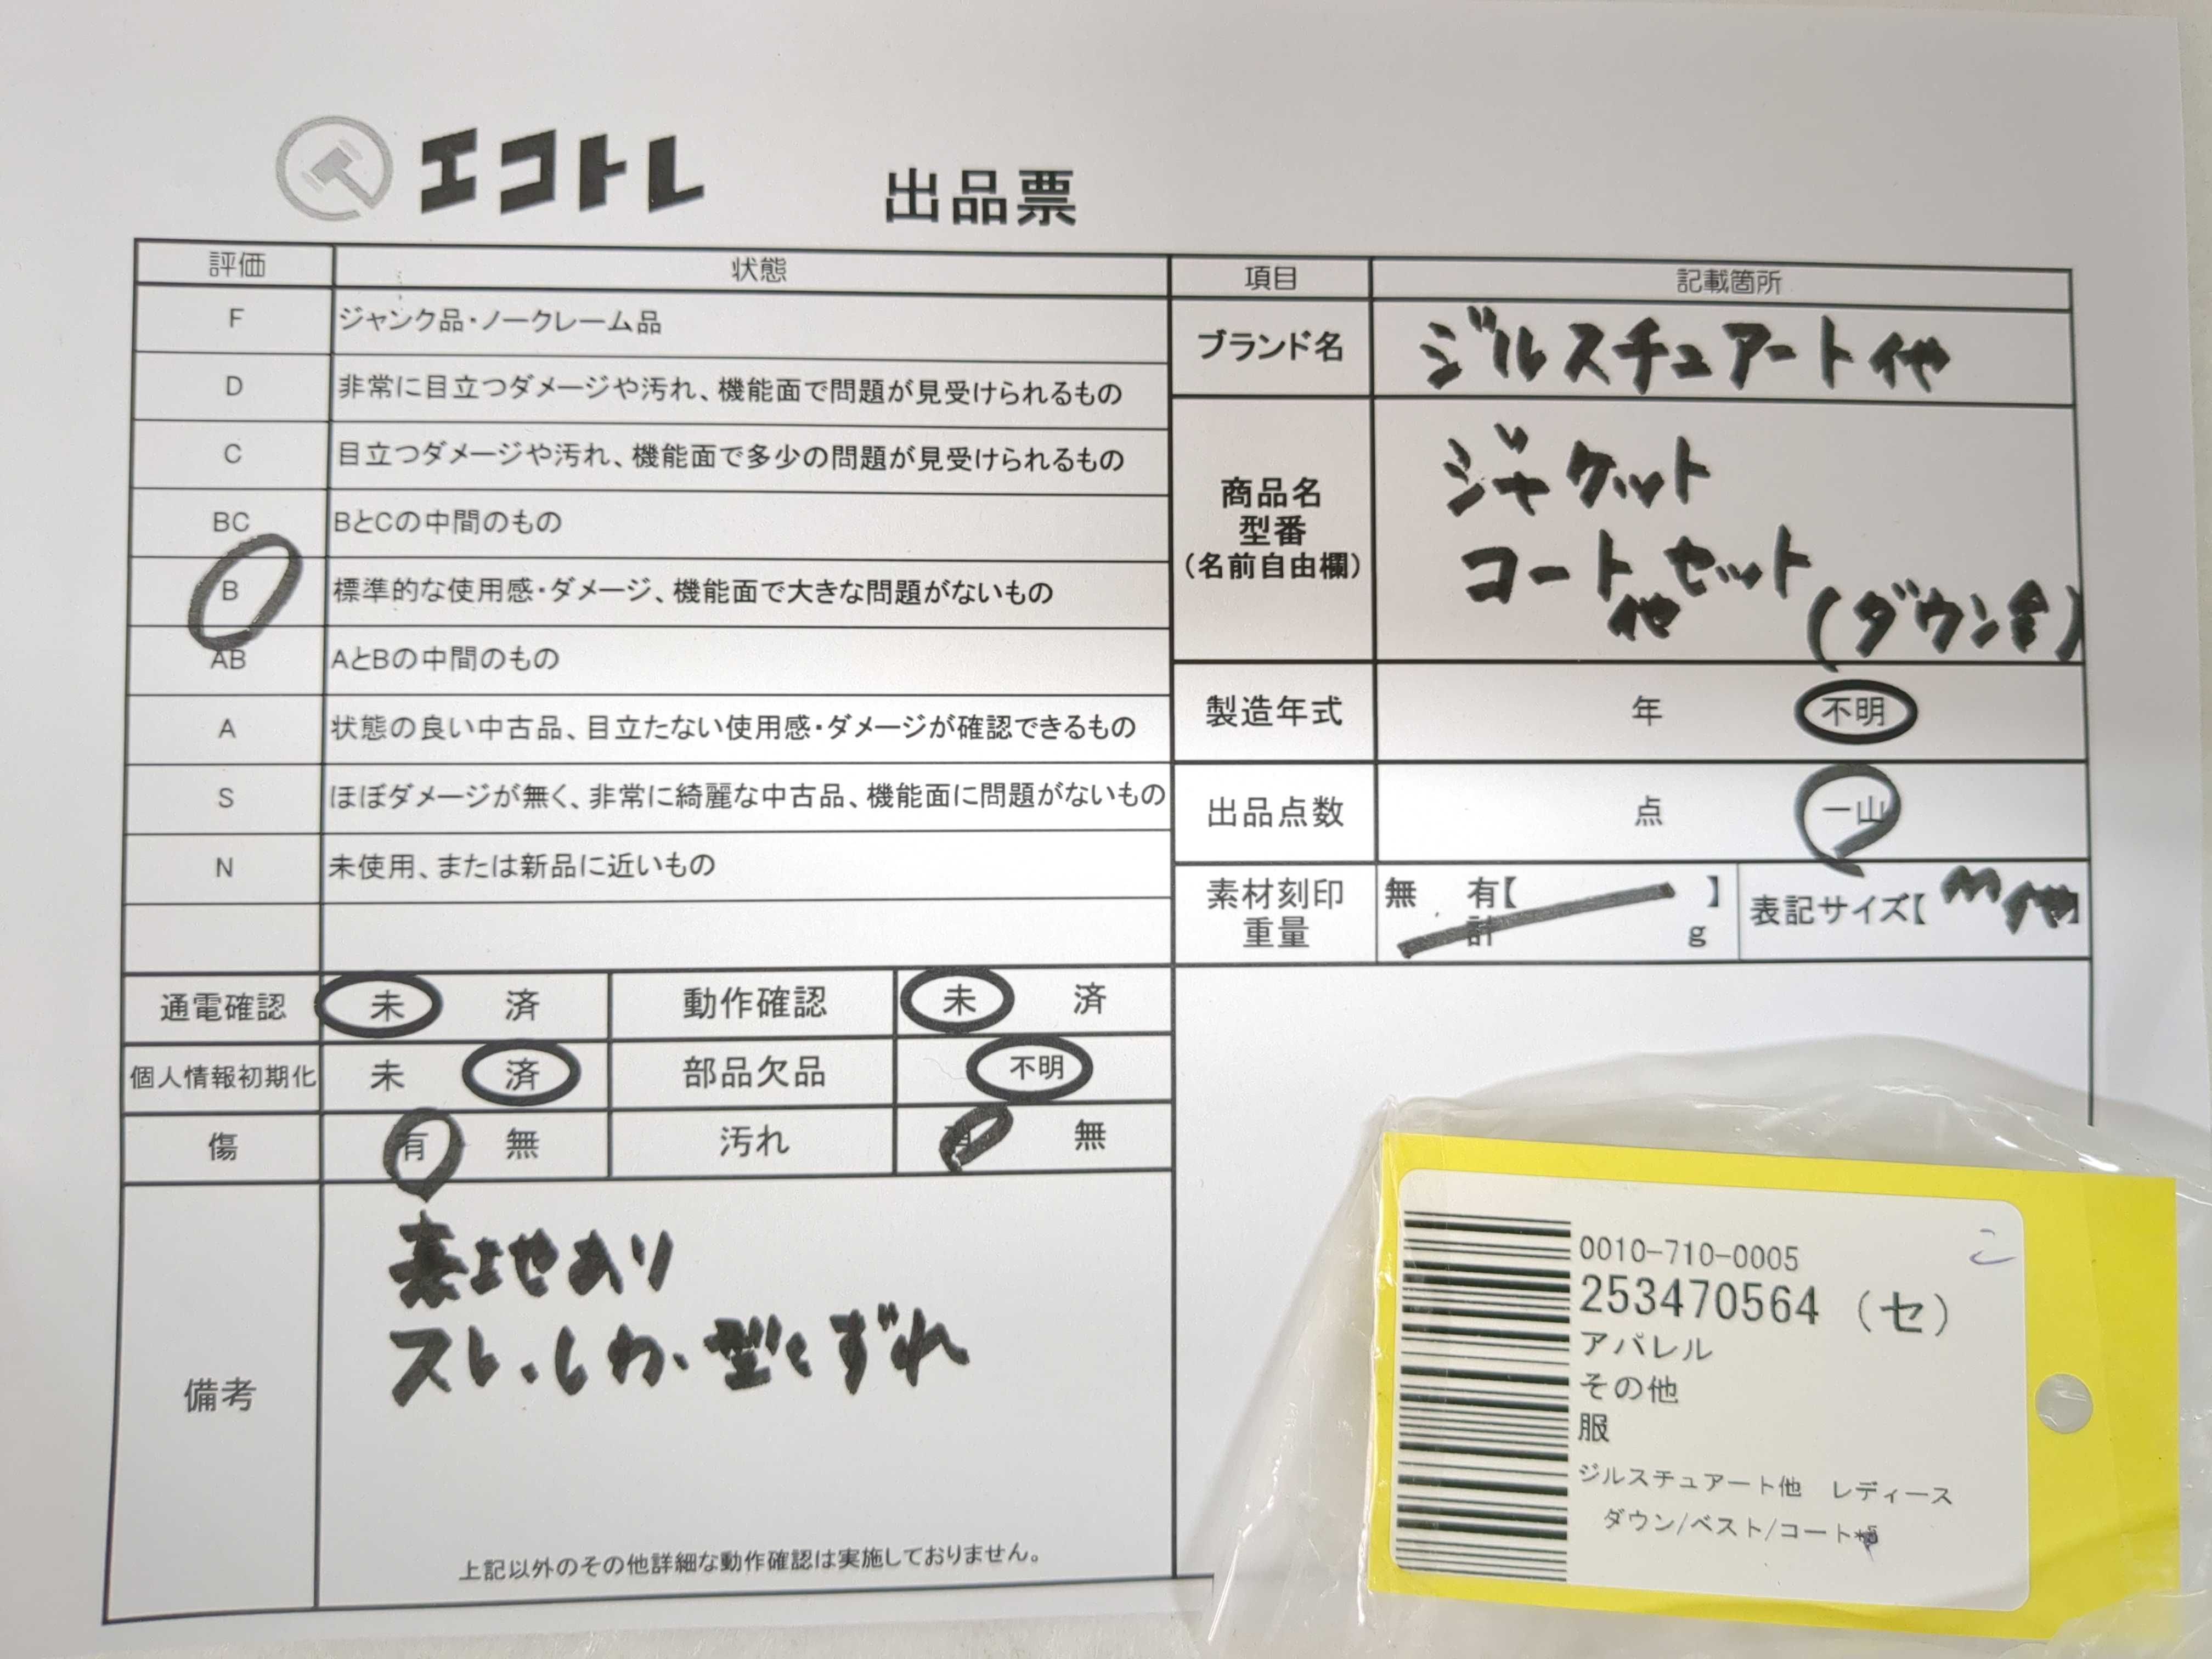 エコトレ 出品票
評価 状態 項目 記載箇所
F ジャンク品・ノークレーム品
D 非常に目立つダメージや汚れ、機能面で問題が見受けられるもの
C 目立つダメージや汚れ、機能面で多少の問題が見受けられるもの
BC BとCの中間のもの
B 標準的な使用感・ダメージ、機能面で大きな問題がないもの
AB AとBの中間のもの
A 状態の良い中古品、目立たない使用感・ダメージが確認できるもの
S ほぼダメージが無く、非常に綺麗な中古品、機能面に問題がないもの
N 未使用、または新品に近いもの
ブランド名 ジルスチュアート他
商品名
型番
(名前自由欄)
ジャケット
コート他セット
(ダウン含)
製造年式 年 不明
出品点数 点 一山
素材刻印 無 有【 】
重量 計 g
表記サイズ【M他】
通電確認 未 済 動作確認 未 済
個人情報初期化 未 済 部品欠品 不明
傷 有 無 汚れ 有 無
備考
あり
スレ、しわ、型くずれ
上記以外のその他詳細な動作確認は実施しておりません。
こ
0010-710-0005
253470564 (セ)
アパレル
その他
服
ジルスチュアート他 レディース
ダウン/ベスト/コート